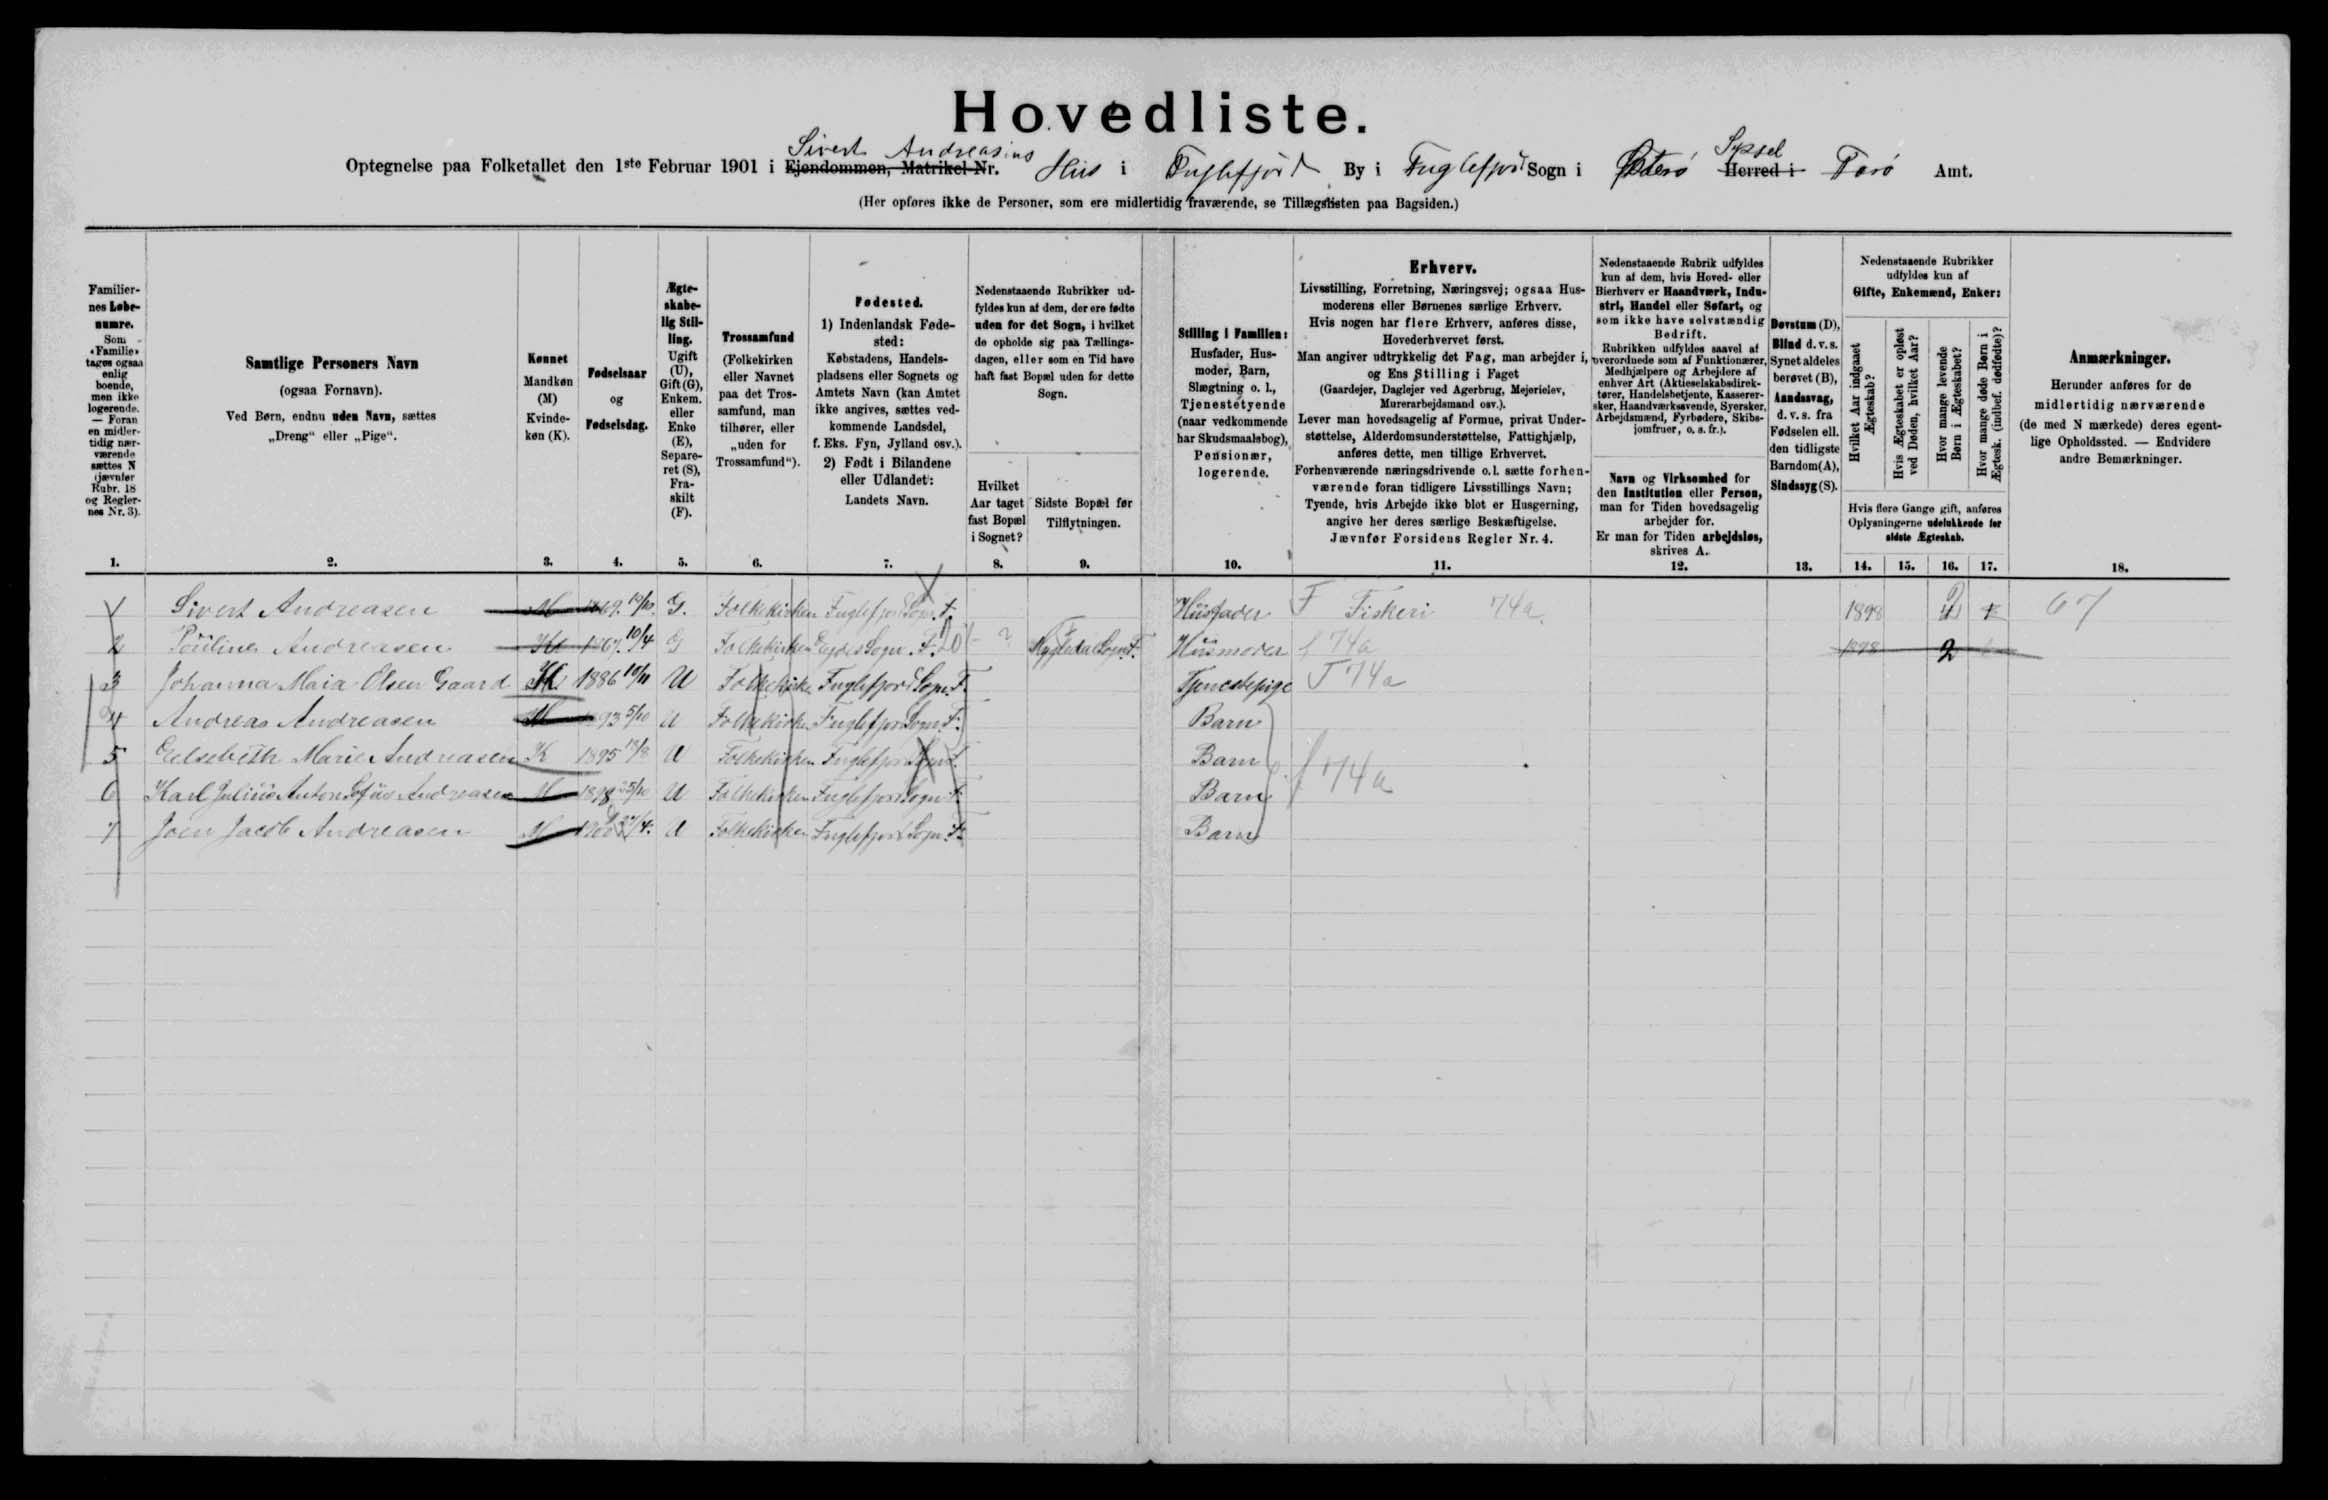 Hovedliste.
Sivert Andreasens Sysel
Optegnelse paa Folketallet den 1ste Februar 1901 i Ejendommen, Matrikel-Nr. Hus i Fuglefjord By i Fuglefjord Sogn i Østerø Herred i Færø Amt.
(Her opføres ikke de Personer, som ere midlertidig fraværende, se Tillægslisten paa Bagsiden.)
Familiernes Løbenumre.
Som «Familie» tages ogsaa enlig boende, men ikke logerende. — Foran en midlertidig nærværende sættes N (jævnfør Rubr. 18 og Reglernes Nr. 3).
Samtlige Personers Navn
(ogsaa Fornavn).
Ved Børn, endnu uden Navn, sættes
„Dreng“ eller „Pige“.
Kønnet
Mandkøn (M)
Kvindekøn (K).
Fødselsaar
og
Fødselsdag.
Ægteskabelig Stilling.
Ugift (U), Gift (G), Enkem. eller Enke (E), Separeret (S), Fraskilt (F).
Trossamfund
(Folkekirken eller Navnet paa det Trossamfund, man tilhører, eller „uden for Trossamfund“).
Fødested.
1) Indenlandsk Fødested:
Købstadens, Handelspladsens eller Sognets og Amtets Navn (kan Amtet ikke angives, sættes vedkommende Landsdel, f. Eks. Fyn, Jylland osv.).
2) Født i Bilandene eller Udlandet:
Landets Navn.
Nedenstaaende Rubrikker udfyldes kun af dem, der ere fødte uden for det Sogn, i hvilket de opholde sig paa Tællingsdagen, eller som en Tid have haft fast Bopæl uden for dette Sogn.
Hvilket Aar taget fast Bopæl i Sognet?
Sidste Bopæl før Tilflytningen.
Stilling i Familien:
Husfader, Husmoder, Barn, Slægtning o. l., Tjenestetyende (naar vedkommende har Skudsmaalsbog), Pensionær, logerende.
Erhverv.
Livsstilling, Forretning, Næringsvej; ogsaa Husmoderens eller Børnenes særlige Erhverv.
Hvis nogen har flere Erhverv, anføres disse, Hovederhvervet først.
Man angiver udtrykkelig det Fag, man arbejder i, og Ens Stilling i Faget
(Gaardejer, Daglejer ved Agerbrug, Mejerielev, Murerarbejdsmand osv.).
Lever man hovedsagelig af Formue, privat Understøttelse, Alderdomsunderstøttelse, Fattighjælp, anføres dette, men tillige Erhvervet.
Forhenværende næringsdrivende o. l. sætte forhenværende foran tidligere Livsstillings Navn;
Tyende, hvis Arbejde ikke blot er Husgerning, angive her deres særlige Beskæftigelse.
Jævnfør Forsidens Regler Nr. 4.
Nedenstaaende Rubrik udfyldes kun af dem, hvis Hoved- eller Bierhverv er Haandværk, Industri, Handel eller Søfart, og som ikke have selvstændig Bedrift.
Rubrikken udfyldes saavel af overordnede som af Funktionærer, Medhjælpere og Arbejdere af enhver Art (Aktieselskabsdirektører, Handelsbetjente, Kasserersker, Haandværkssvende, Syersker, Arbejdsmænd, Fyrbødere, Skibsjomfruer, o. s. fr.).
Navn og Virksomhed for den Institution eller Person, man for Tiden hovedsagelig arbejder for.
Er man for Tiden arbejdsløs, skrives A.
Døvstum (D), Blind d. v. s. Synet aldeles berøvet (B), Aandssvag, d. v. s. fra Fødselen ell. den tidligste Barndom (A), Sindssyg (S).
Nedenstaaende Rubrikker udfyldes kun af
Gifte, Enkemænd, Enker:
Hvilket Aar indgaaet Ægteskab?
Hvis Ægteskabet er opløst ved Døden, hvilket Aar?
Hvor mange levende Børn i Ægteskabet?
Hvor mange døde Børn i Ægtesk. (indbef. dødfødte)?
Hvis flere Gange gift, anføres Oplysningerne udelukkende for sidste Ægteskab.
Anmærkninger.
Herunder anføres for de midlertidig nærværende (de med N mærkede) deres egentlige Opholdssted. — Endvidere andre Bemærkninger.
1. 2. 3. 4. 5. 6. 7. 8. 9. 10. 11. 12. 13. 14. 15. 16. 17. 18.
Sivert Andreasen M 1869 G. Folkekirken Fuglefjord Sogn F. Husfader F Fiskeri 74a 1898 2 67
2 Pouline Andreasen K 1867 10/4 G Folkekirken Sogn. F. ? Sogn F. Husmoder f 74a 1898 2
3 Johanna Maia Olsen Gaard K 1886 10/11 U Folkekirke Fuglefjord Sogn F. Tjenestepige T 74a
4 Andreas Andreasen M 1893 5/10 U Folkekirke Fuglefjord Sogn F. Barn
5 Eelsebeth Marie Andreasen K 1895 18/8 U Folkekirken Fuglefjord Sogn F. Barn f 74a
6 Karl Julius Anton Sofus Andreasen M 1898 25/10 U Folkekirken Fuglefjord Sogn F. Barn
7 Joen Jacob Andreasen M 1900 27/4 U Folkekirken Fuglefjord Sogn F. Barn